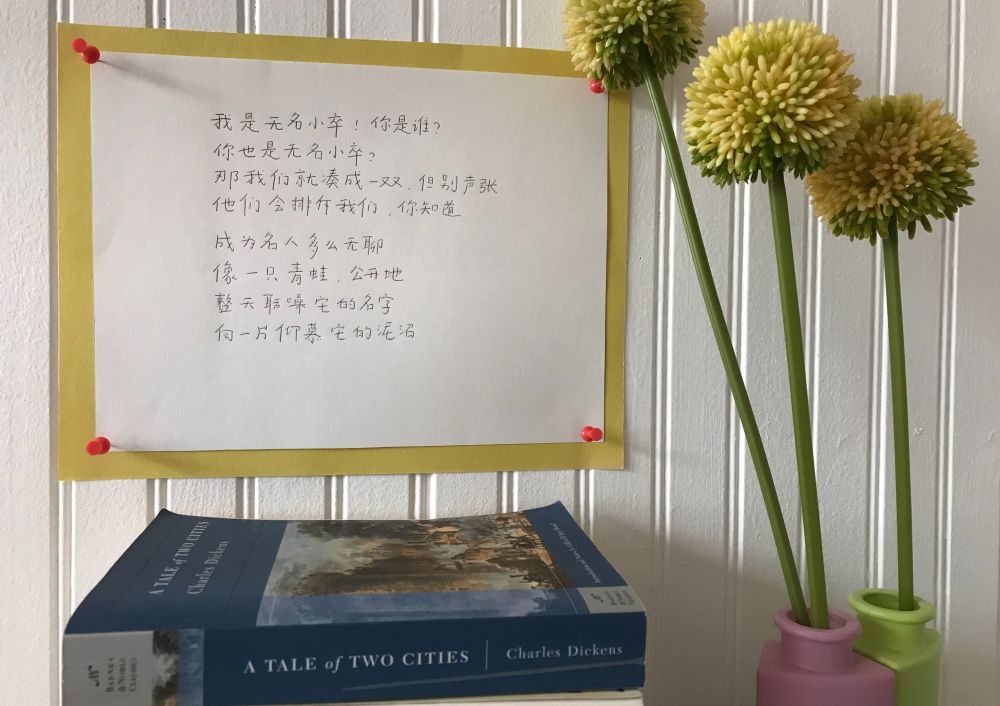 我是无名小卒！你是谁？
你也是无名小卒？
那我们就凑成一双，但别声张
他们会排斥我们，你知道
成为名人多么无聊
像一只青蛙，公开地
整天聒噪它的名字
向一片仰慕它的泥沼
A TALE of TWO CITIES
Charles Dickens
BARNES
& NOBLE
CLASSICS
A TALE of TWO CITIES
Charles Dickens